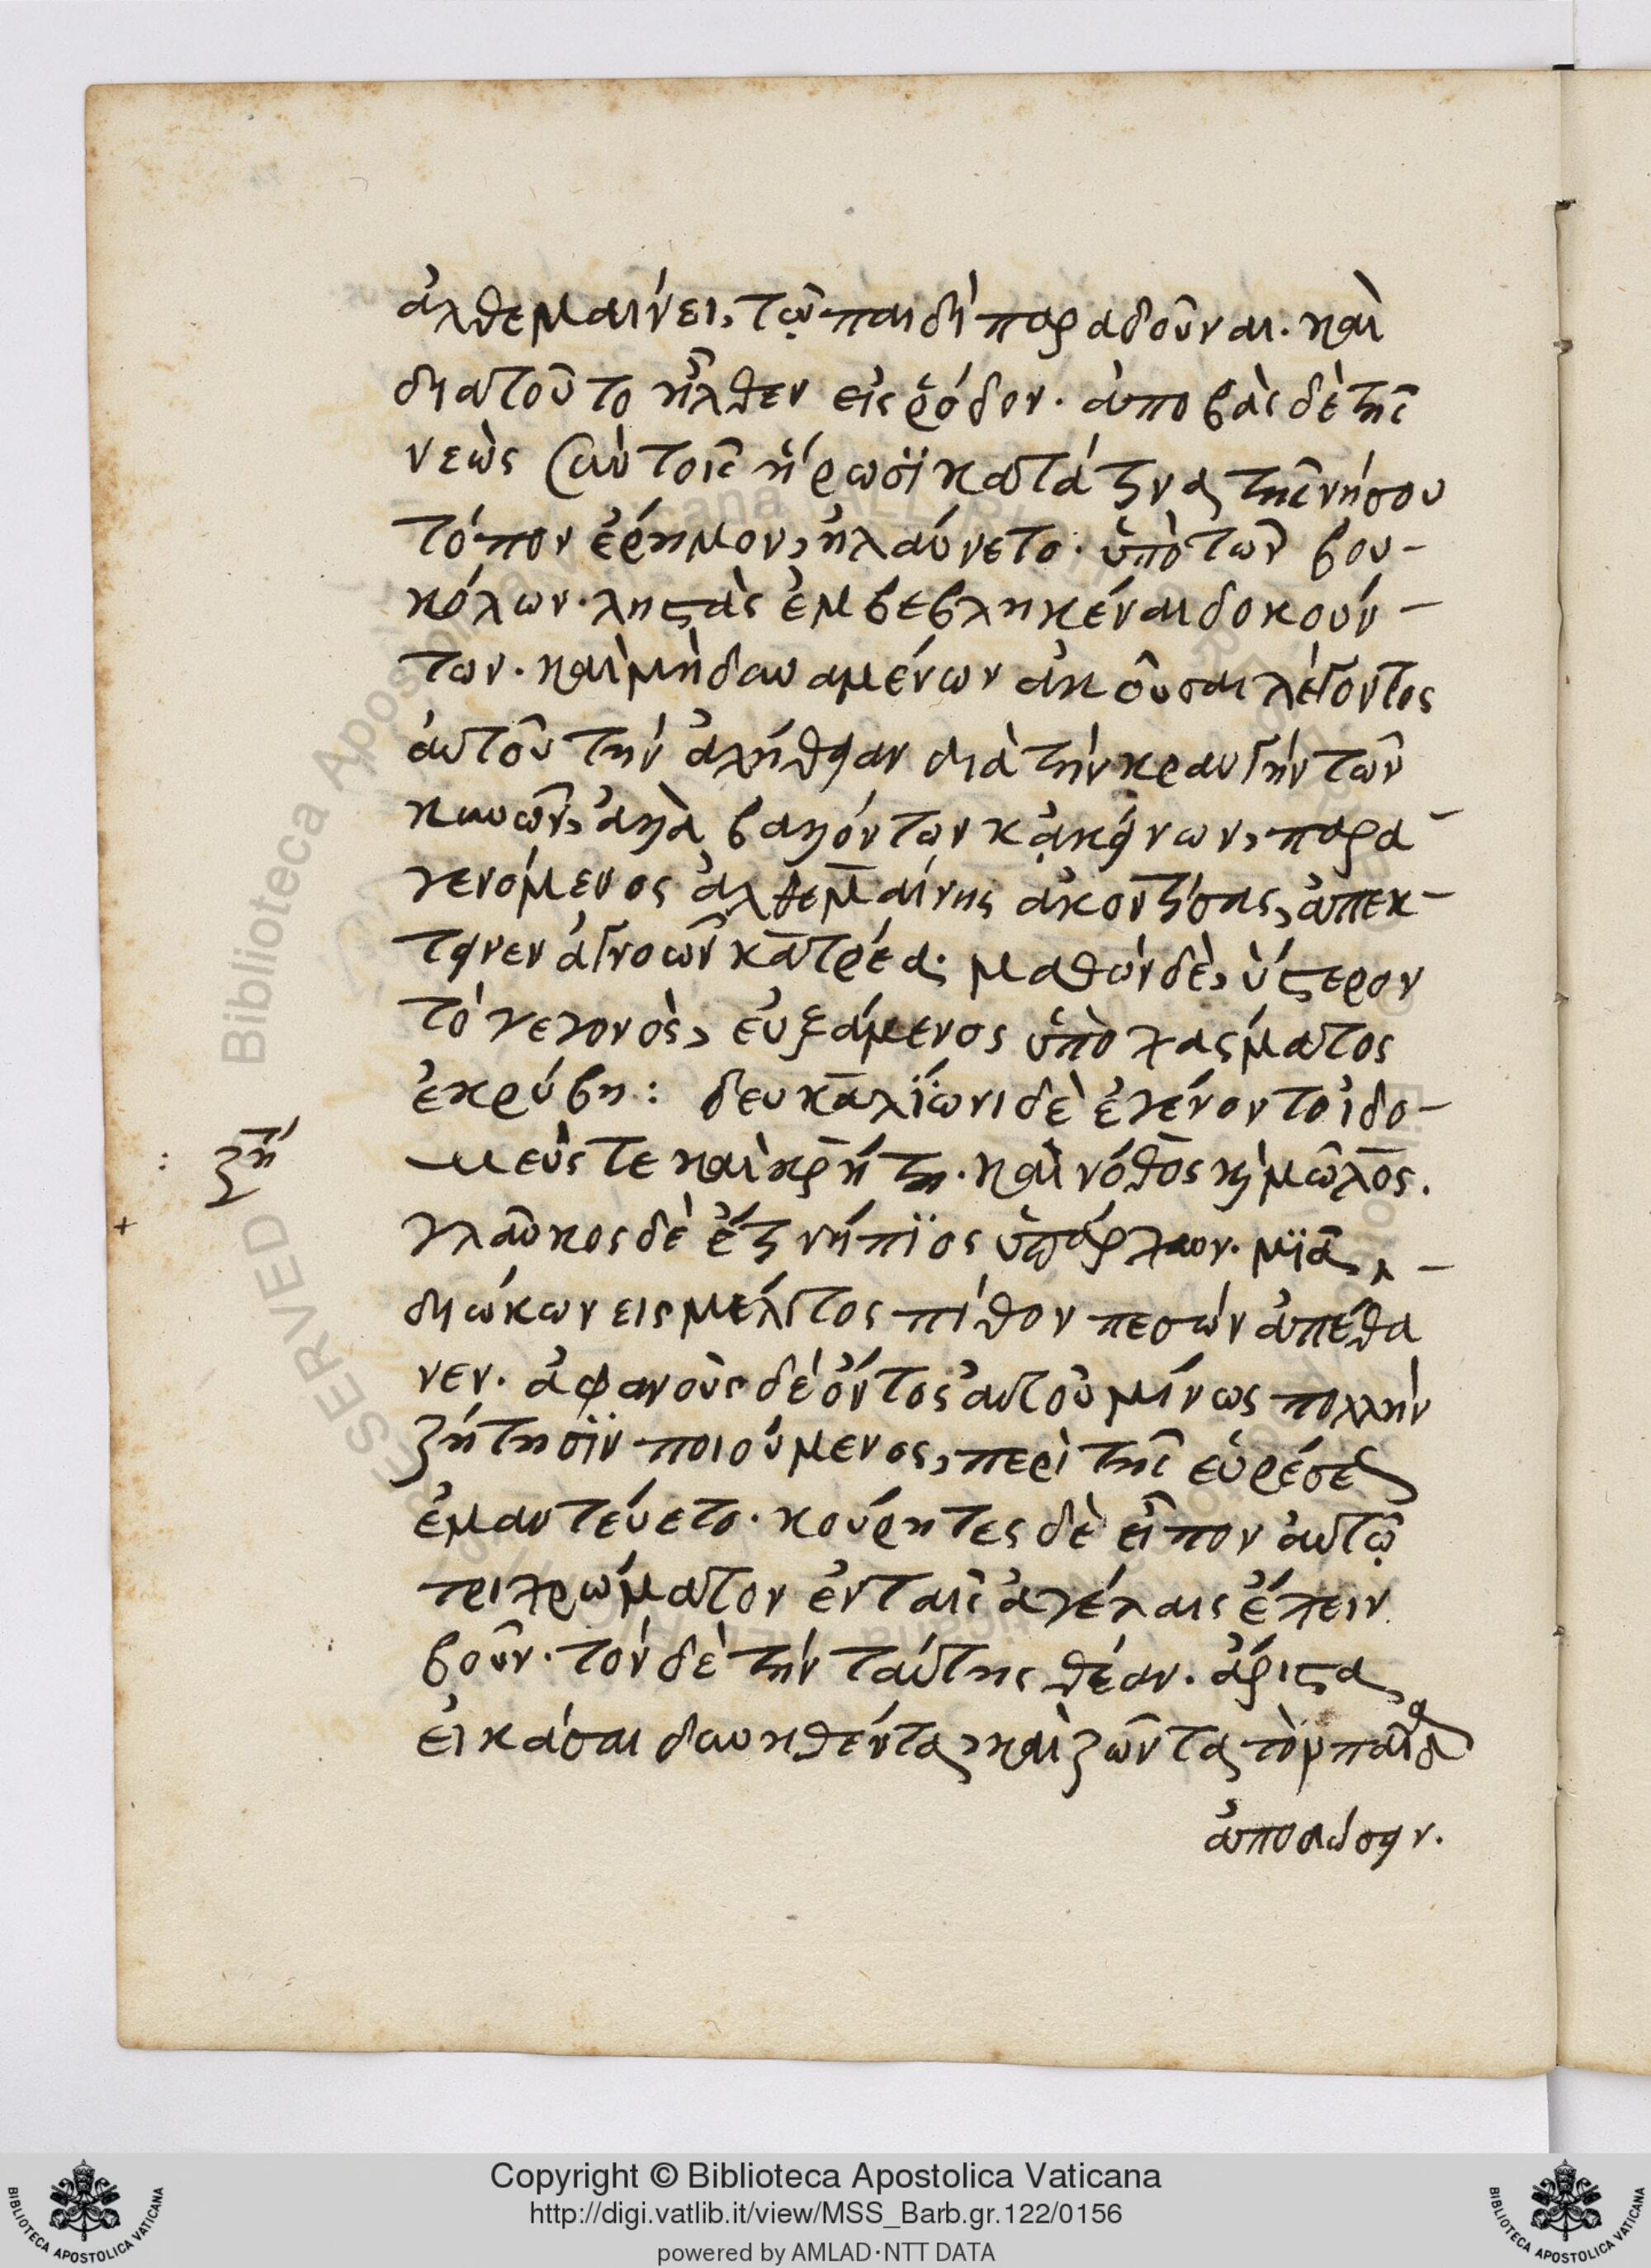 ἀλθεμαίνει, τῷ παιδὶ παραδοῦναι. καὶ
διατοῦτο ἦλθεν εἰς ῥόδον. ἀποβὰς δὲ τῆς
νεὼς σὺν τοῖς ἥρωσϊ κατά τινα τῆς νήσου
τόπον ἐρήμον, ἠλαύνετο. ὑπὸ τῶν βου-
κόλων. ληστὰς ἐμβεβληκέναι δοκούν-
των. καὶ μὴ δυναμένων ἀκοῦσαι λέγοντος
αὐτοῦ τὴν ἀλήθειαν διὰ τὴν κραυγὴν τῶν
κυνῶν, ἀλλὰ βαλλόντων κᾀκείνων, παρα-
γενόμενος ἀλθεμαίνης ἀκοντίσας, ἀπέκ-
τεινεν ἀγνοῶν κατρέα. μαθὼν δὲ, ὕστερον
τὸ γεγονὸς, εὐξάμενος ὑπὸ χάσματος
ἐκρύβη: δευκαλΐωνι δὲ ἐγένοντο ἰδο-
: ζή
μεύς τε καὶ κρήτη. καὶ νόθος κὶ μῶλος.
+
γλαῦκος δὲ ἔτι νήπϊος ὑπάρχων. μῦαν
διώκων εις μέλιτος πίθον πεσὼν ἀπέθα
νεν. ἀφανοὺς δὲ ὄντος αὐτοῦ μίνως πολλὴν
ζήτησϊν ποιούμενος, περὶ τῆς εὑρέσεως
ἐμαντεύετο. κούρητες δὲ εἶπον αὐτῷ
τριχρώματον ἐν ταῖς ἀγέλαις ἔχειν
βοῦν. τὸν δὲ τὴν ταύτης θέαν. ἄριστα
εἰκάσαι δυνηθέντα, καὶ ζῶντα τὸν παῖδα
ἀποδώσειν.
Copyright © Biblioteca Apostolica Vaticana
http://digi.vatlib.it/view/MSS_Barb.gr.122/0156
powered by AMLAD·NTT DATA
BIBLIOTECA APOSTOLICA VATICANA
BIBLIOTECA APOSTOLICA VATICANA